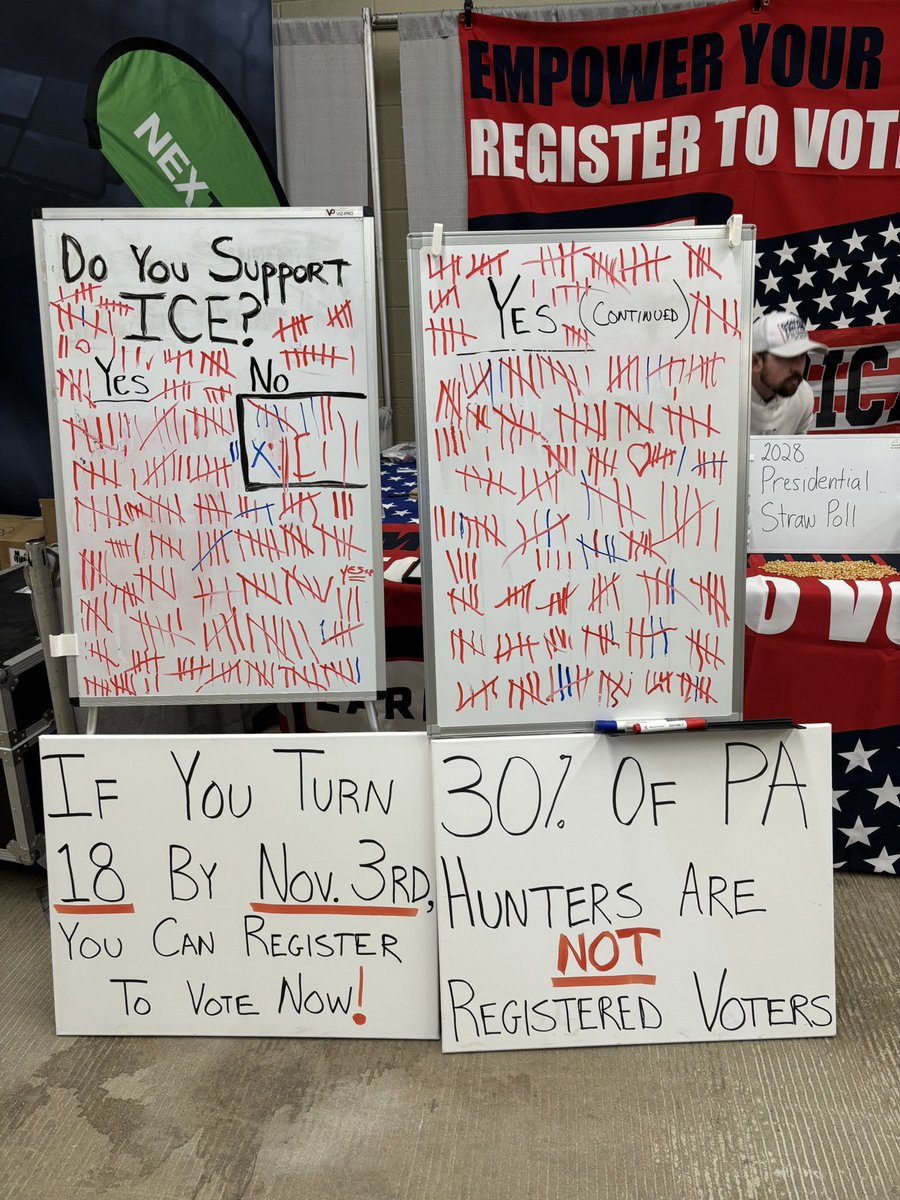 NEXT
EMPOWER YOUR
REGISTER TO VOTE
VP VIZ-PRO
Do You Support
ICE?
Yes
No
Yes (Continued)
2028
Presidential
Straw Poll
If You Turn
18 By Nov. 3rd,
You Can Register
To Vote Now!
30% Of PA
Hunters Are
NOT
Registered Voters